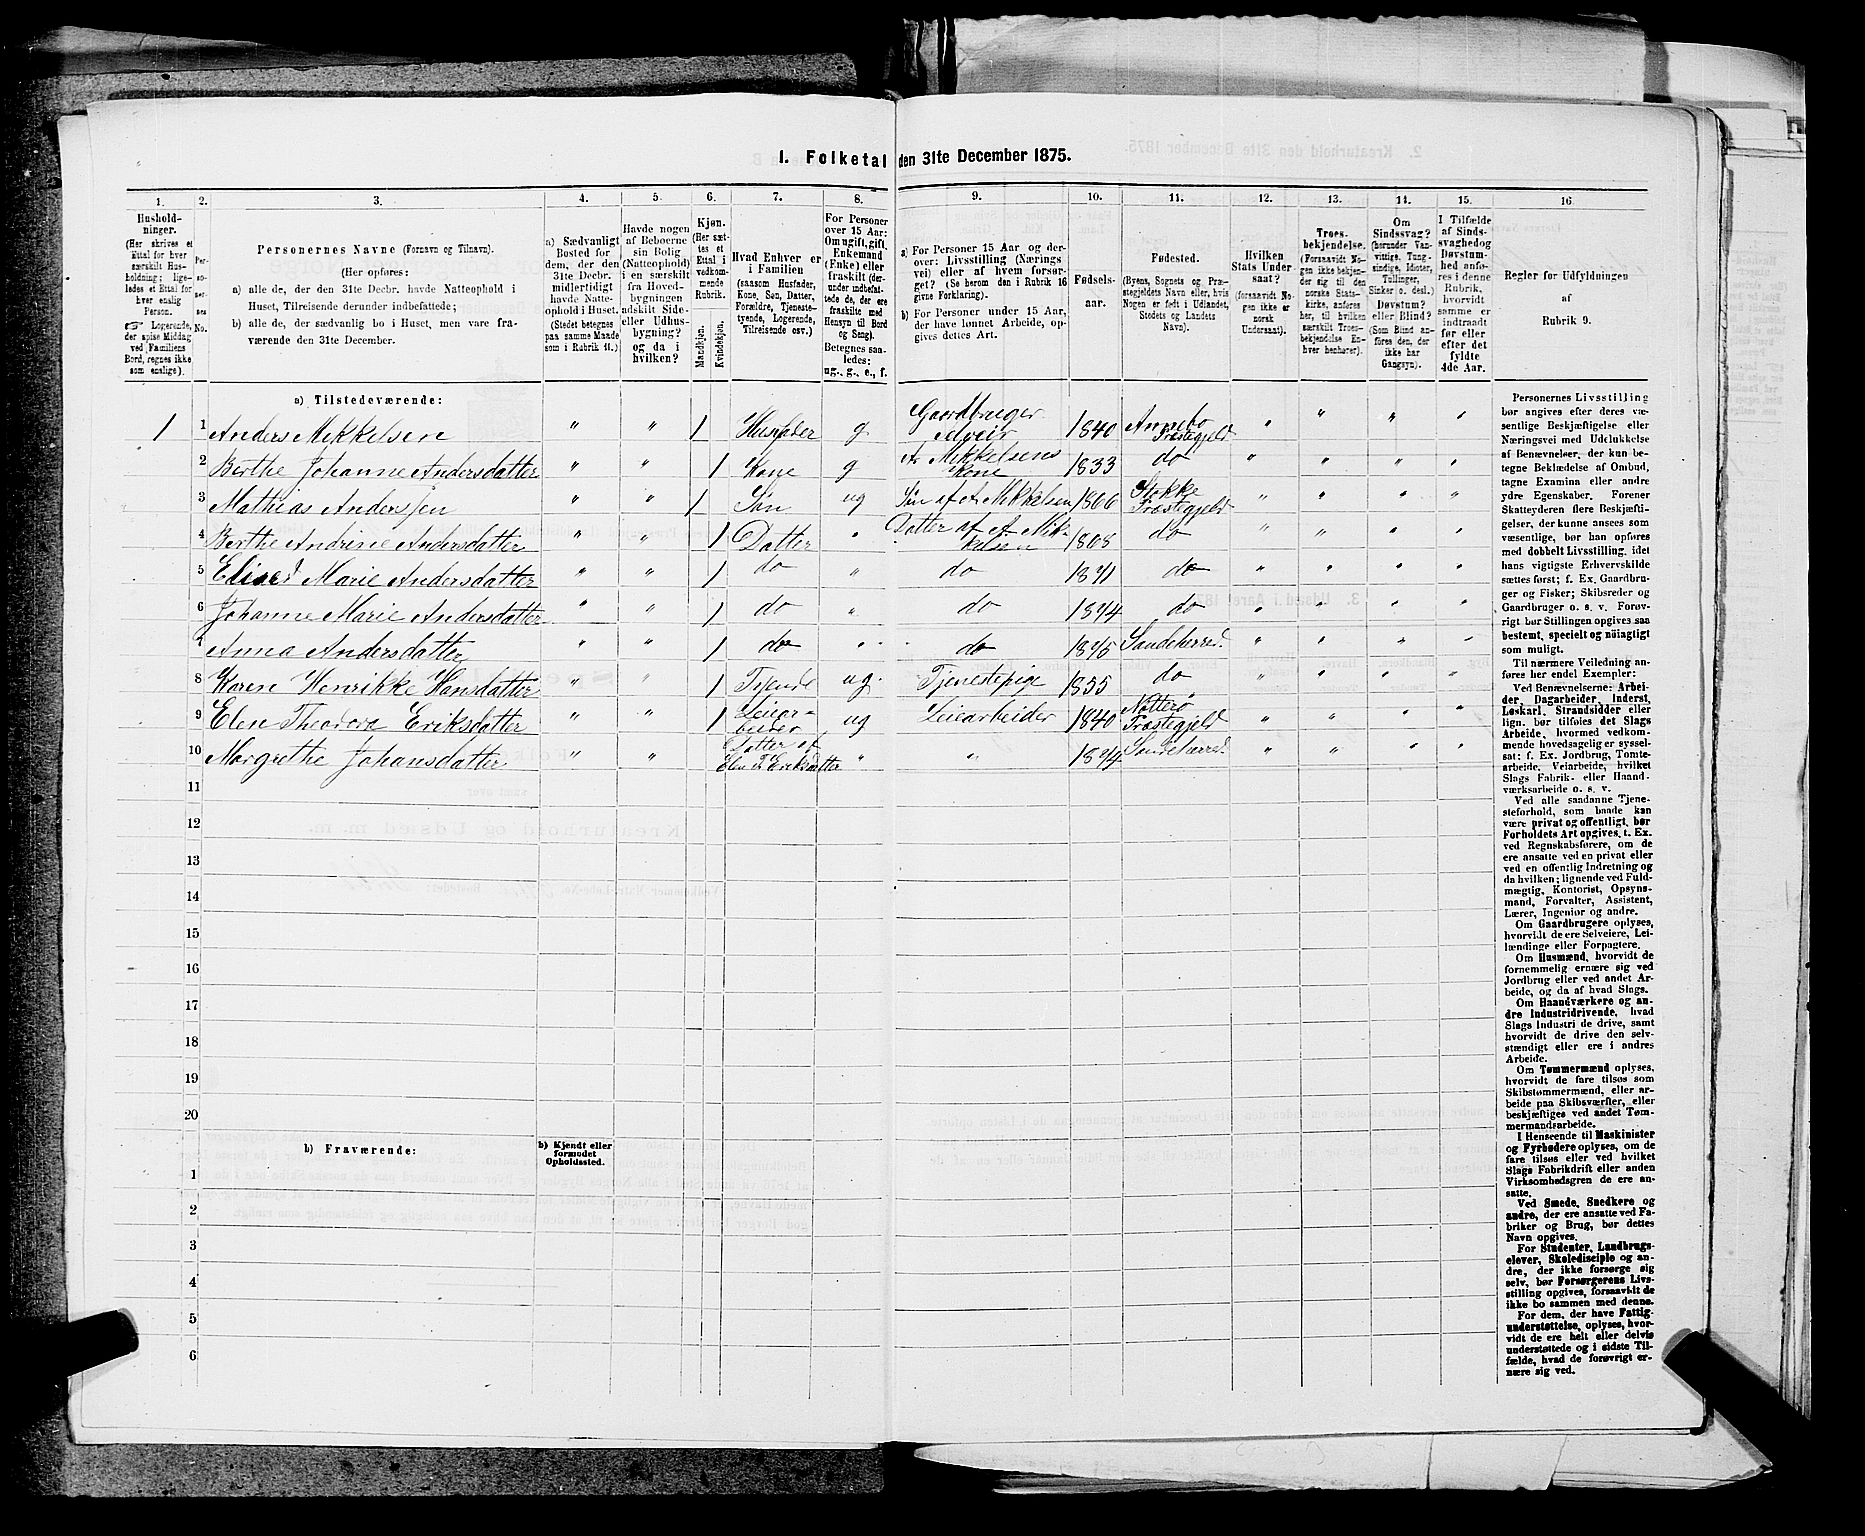 1. Folketal den 31te December 1875.
1. 2. 3. 4. 5. 6. 7. 8. 9. 10. 11. 12. 13. 14. 15. 16
Hushold-
ninger.
(Her skrives et
Ettal for hver
særskilt Hus-
holdning; lige-
ledes et Ettal for
hver enslig
Person.
☞ Logerende,
der spise Middag
ved Familiens
Bord, regnes ikke
som enslige).
Per-
so-
ner-
nes
No.
Personernes Navne (Fornavn og Tilnavn).
(Her opføres:
a) alle de, der den 31te Decbr. havde Natteophold i
Huset, Tilreisende derunder indbefattede;
b) alle de, der sædvanlig bo i Huset, men vare fra-
værende den 31te December.
a) Sædvanligt
Bosted for
dem, der den
31te Decbr.
midlertidigt
havde Natte-
ophold i Huset.
(Stedet betegnes
paa samme Maade
som i Rubrik 11.)
Havde nogen
af Beboerne
sin Bolig
(Natteophold)
i en særskilt
fra Hoved-
bygningen
adskilt Side-
eller Udhus-
bygning?
og da i
hvilken?
Kjøn.
(Her sæt-
tes et
Ettal i
vedkom-
mende
Rubrik.
Mandkjøn.
Kvindekjøn.
Hvad Enhver er
i Familien
(saasom Husfader,
Kone, Søn, Datter,
Forældre, Tjeneste-
tyende, Logerende,
Tilreisende osv.)
For Personer
over 15 Aar:
Om ugift, gift,
Enkemand
(Enke) eller
fraskilt (der-
under indbefat-
tede de, der ere
fraskilte med
Hensyn til Bord
og Seng).
Betegnes saa-
ledes:
ug., g., e., f.
a) For Personer 15 Aar og der-
over: Livsstilling (Nærings
vei) eller af hvem forsør-
get? (Se herom den i Rubrik 16
givne Forklaring).
b) For Personer under 15 Aar,
der have lønnet Arbeide, op-
gives dettes Art.
Fødsels-
aar.
Fødested.
(Byens, Sognets og Præ-
stegjeldets Navn eller, hvis
Nogen er født i Udlandet,
Stedets og Landets
Navn).
Hvilken
Stats Under
saat?
(forsaavidt No-
gen ikke er
norsk
Undersaat).
Troes-
bekjendelse.
(Forsaavidt No-
gen ikke bekjen-
der sig til den
norske Stats-
kirke, anføres
her, til hvilken
særskilt Troes-
bekjendelse En-
hver henhører).
Om
Sindssvag?
(herunder Van-
vittige, Tung-
sindige, Idioter,
Tullinger,
Sinker o. desl.)
Døvstum?
eller Blind?
(Som Blind an-
føres den, der
ikke har
Gangsyn).
I Tilfælde
af Sinds-
svaghed og
Døvstum-
hed anfø-
res i denne
Rubrik,
hvorvidt
samme er
indtraadt
før eller
efter det
fyldte
4de Aar.
Regler for Udfyldningen
af
Rubrik 9.
a) Tilstedeværende:
1 1 Anders Mikkelsen " " 1 Husfader g Gaardbruger selveier 1840 Annebo Præstegjeld " " " "
2 Berthe Johanne Andersdatter " " 1 Kone g A. Mikkelsens Kone 1833 do " " " "
3 Mathias Andersen " " 1 Søn ug Søn af A Mikkelsen 1866 Stokke Præstegjeld " " " "
4 Berthe Andrine Andersdatter " " 1 Datter " Datter af A Mik-kelsen 1868 do " " " "
5 Elise Marie Andersdatter " " 1 do " do 1871 do " " " "
6 Johanne Marie Andersdatter " " 1 do " do 1874 do " " " "
7 Anna Andersdatter " " 1 do " do 1875 Sandeherred. " " " "
8 Karen Henrikke Hansdatter " " 1 Tjende ug. Tjenestepige 1855 do " " " "
9 Elen Theodora Eriksdatter " " 1 Leiar-beider ug Leiearbeider 1840 Nøtterø Præstegjeld " " " "
10 Margrethe Johansdatter " " 1 Datter af Elen T. Eriksdatter " " 1874 Sandeherred. " " " "
11
12
13
14
15
16
17
18
19
20
b) Fraværende:
b) Kjendt eller
formodet
Opholdssted.
1
2
3
4
5
6
Personernes Livsstilling
bør angives efter deres væ-
sentlige Beskjæftigelse eller
Næringsvei med Udelukkelse
af Benævnelser, der kun be-
tegne Beklædelse af Ombud,
tagne Examina eller andre
ydre Egenskaber. Forener
Skatteyderen flere Beskjæfti-
gelser, der kunne ansees som
væsentlige, bør han opføres
med dobbelt Livsstilling, idet
hans vigtigste Erhvervskilde
sættes først; f. Ex. Gaardbru-
ger og Fisker; Skibsreder og
Gaardbruger o. s. v. Forøv-
rigt bør Stillingen opgives saa
bestemt, specielt og nøiagtigt
som muligt.
Til nærmere Veiledning an-
føres her endel Exempler:
Ved Benævnelserne: Arbei-
der, Dagarbeider, Inderst,
Løskarl, Strandsidder eller
lign. bør tilføies det Slags
Arbeide, hvormed vedkom-
mende hovedsagelig er syssel-
sat; f. Ex. Jordbrug, Tomte-
arbeide, Veiarbeide, hvilket
Slags Fabrik- eller Haand-
værksarbeide o. s. v.
Ved alle saadanne Tjene-
steforhold, som baade kan
være privat og offentligt, bør
Forholdets Art opgives, t. Ex.
ved Regnskabsførere, om de
ere ansatte ved en privat eller
ved en offentlig Indretning og
da hvilken; lignende ved Fuld-
mægtig, Kontorist, Opsyns-
mand, Forvalter, Assistent,
Lærer, Ingeniør og andre.
Om Gaardbrugere oplyses,
hvorvidt de ere Selveiere, Lei-
lændinge eller Forpagtere.
Om Husmænd, hvorvidt de
fornemmelig ernære sig ved
Jordbrug eller ved andet Ar-
beide, og da af hvad Slags.
Om Haandværkere og an-
dre Industridrivende, hvad
Slags Industri de drive, samt
hvorvidt de drive den selv-
stændigt eller ere i andres
Arbeide.
Om Tømmermænd oplyses,
hvorvidt de fare tilsøs som
Skibstømmermænd, eller ar-
beide paa Skibsværfter, eller
beskjæftiges ved andet Tøm-
mermandsarbeide.
I Henseende til Maskinister
og Fyrbødere oplyses, om de
fare tilsøs eller ved hvilket
Slags Fabrikdrift eller anden
Virksomhedsgren de ere an-
satte.
Ved Smede, Snedkere og
andre, der ere ansatte ved Fa-
briker og Brug, bør dettes
Navn opgives.
For Studenter, Landbrugs-
elever, Skoledisciple og an-
dre, der ikke forsørge sig
selv, bør Forsørgerens Livs-
stilling opgives, forsaavidt de
ikke bo sammen med denne.
For dem, der have Fattig-
understøttelse, oplyses, hvor-
vidt de ere helt eller delvis
understøttede og i sidste Til-
fælde, hvad de forøvrigt er-
nære sig ved.